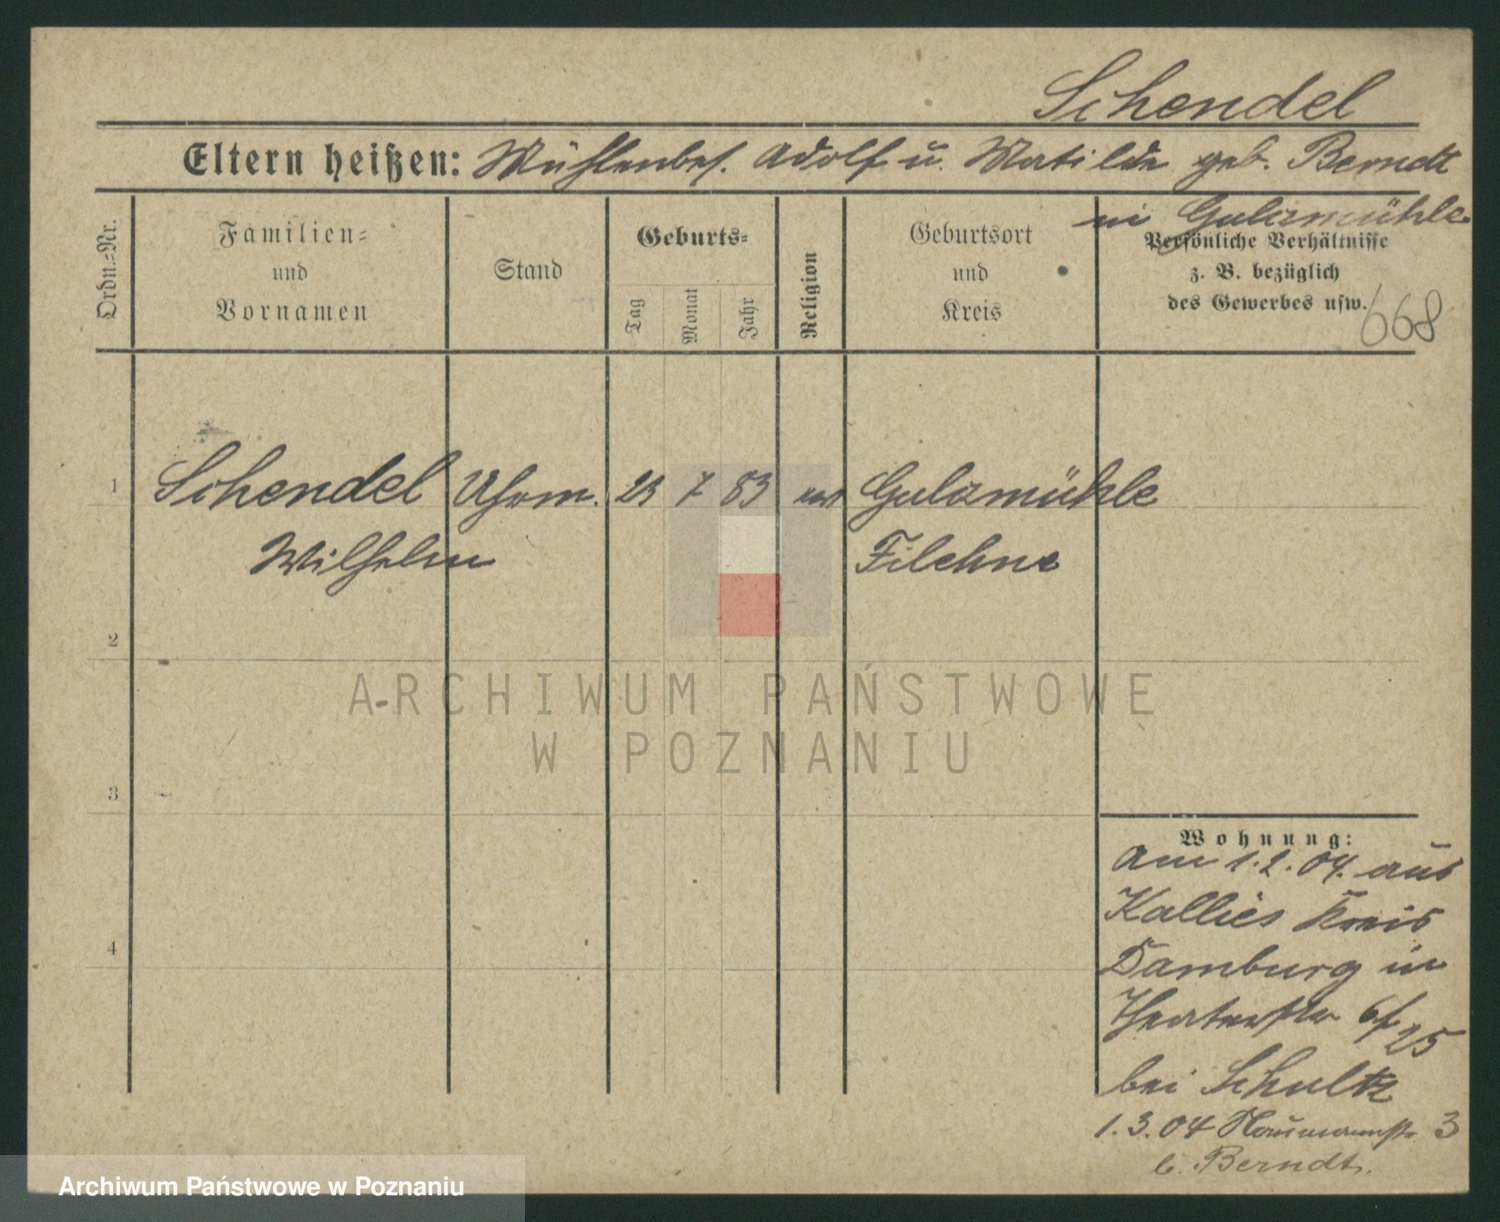 Schendel
Eltern heißen: Mühlenbes. Adolf u. Matilde geb. Berndt
in Gulzmühle
Ordn.=Nr.
Familien=
und
Vornamen
Stand
Geburts=
Tag
Monat
Jahr
Religion
Geburtsort
und
Kreis
Persönliche Verhältnisse
z. B. bezüglich
des Gewerbes usw.
668
1 Schendel Uhrm. 23 7 83 Gulzmühle
Wilhelm Filehne
2
ARCHIWUM PAŃSTWOWE
W POZNANIU
3
4
Wohnung:
am 1.2.04. aus
Kallies Kreis
Damburg in
Theaterstr 6/
25
bei Schultz
1.3.04 Naumannstr 3
b. Berndt.
Archiwum Państwowe w Poznaniu